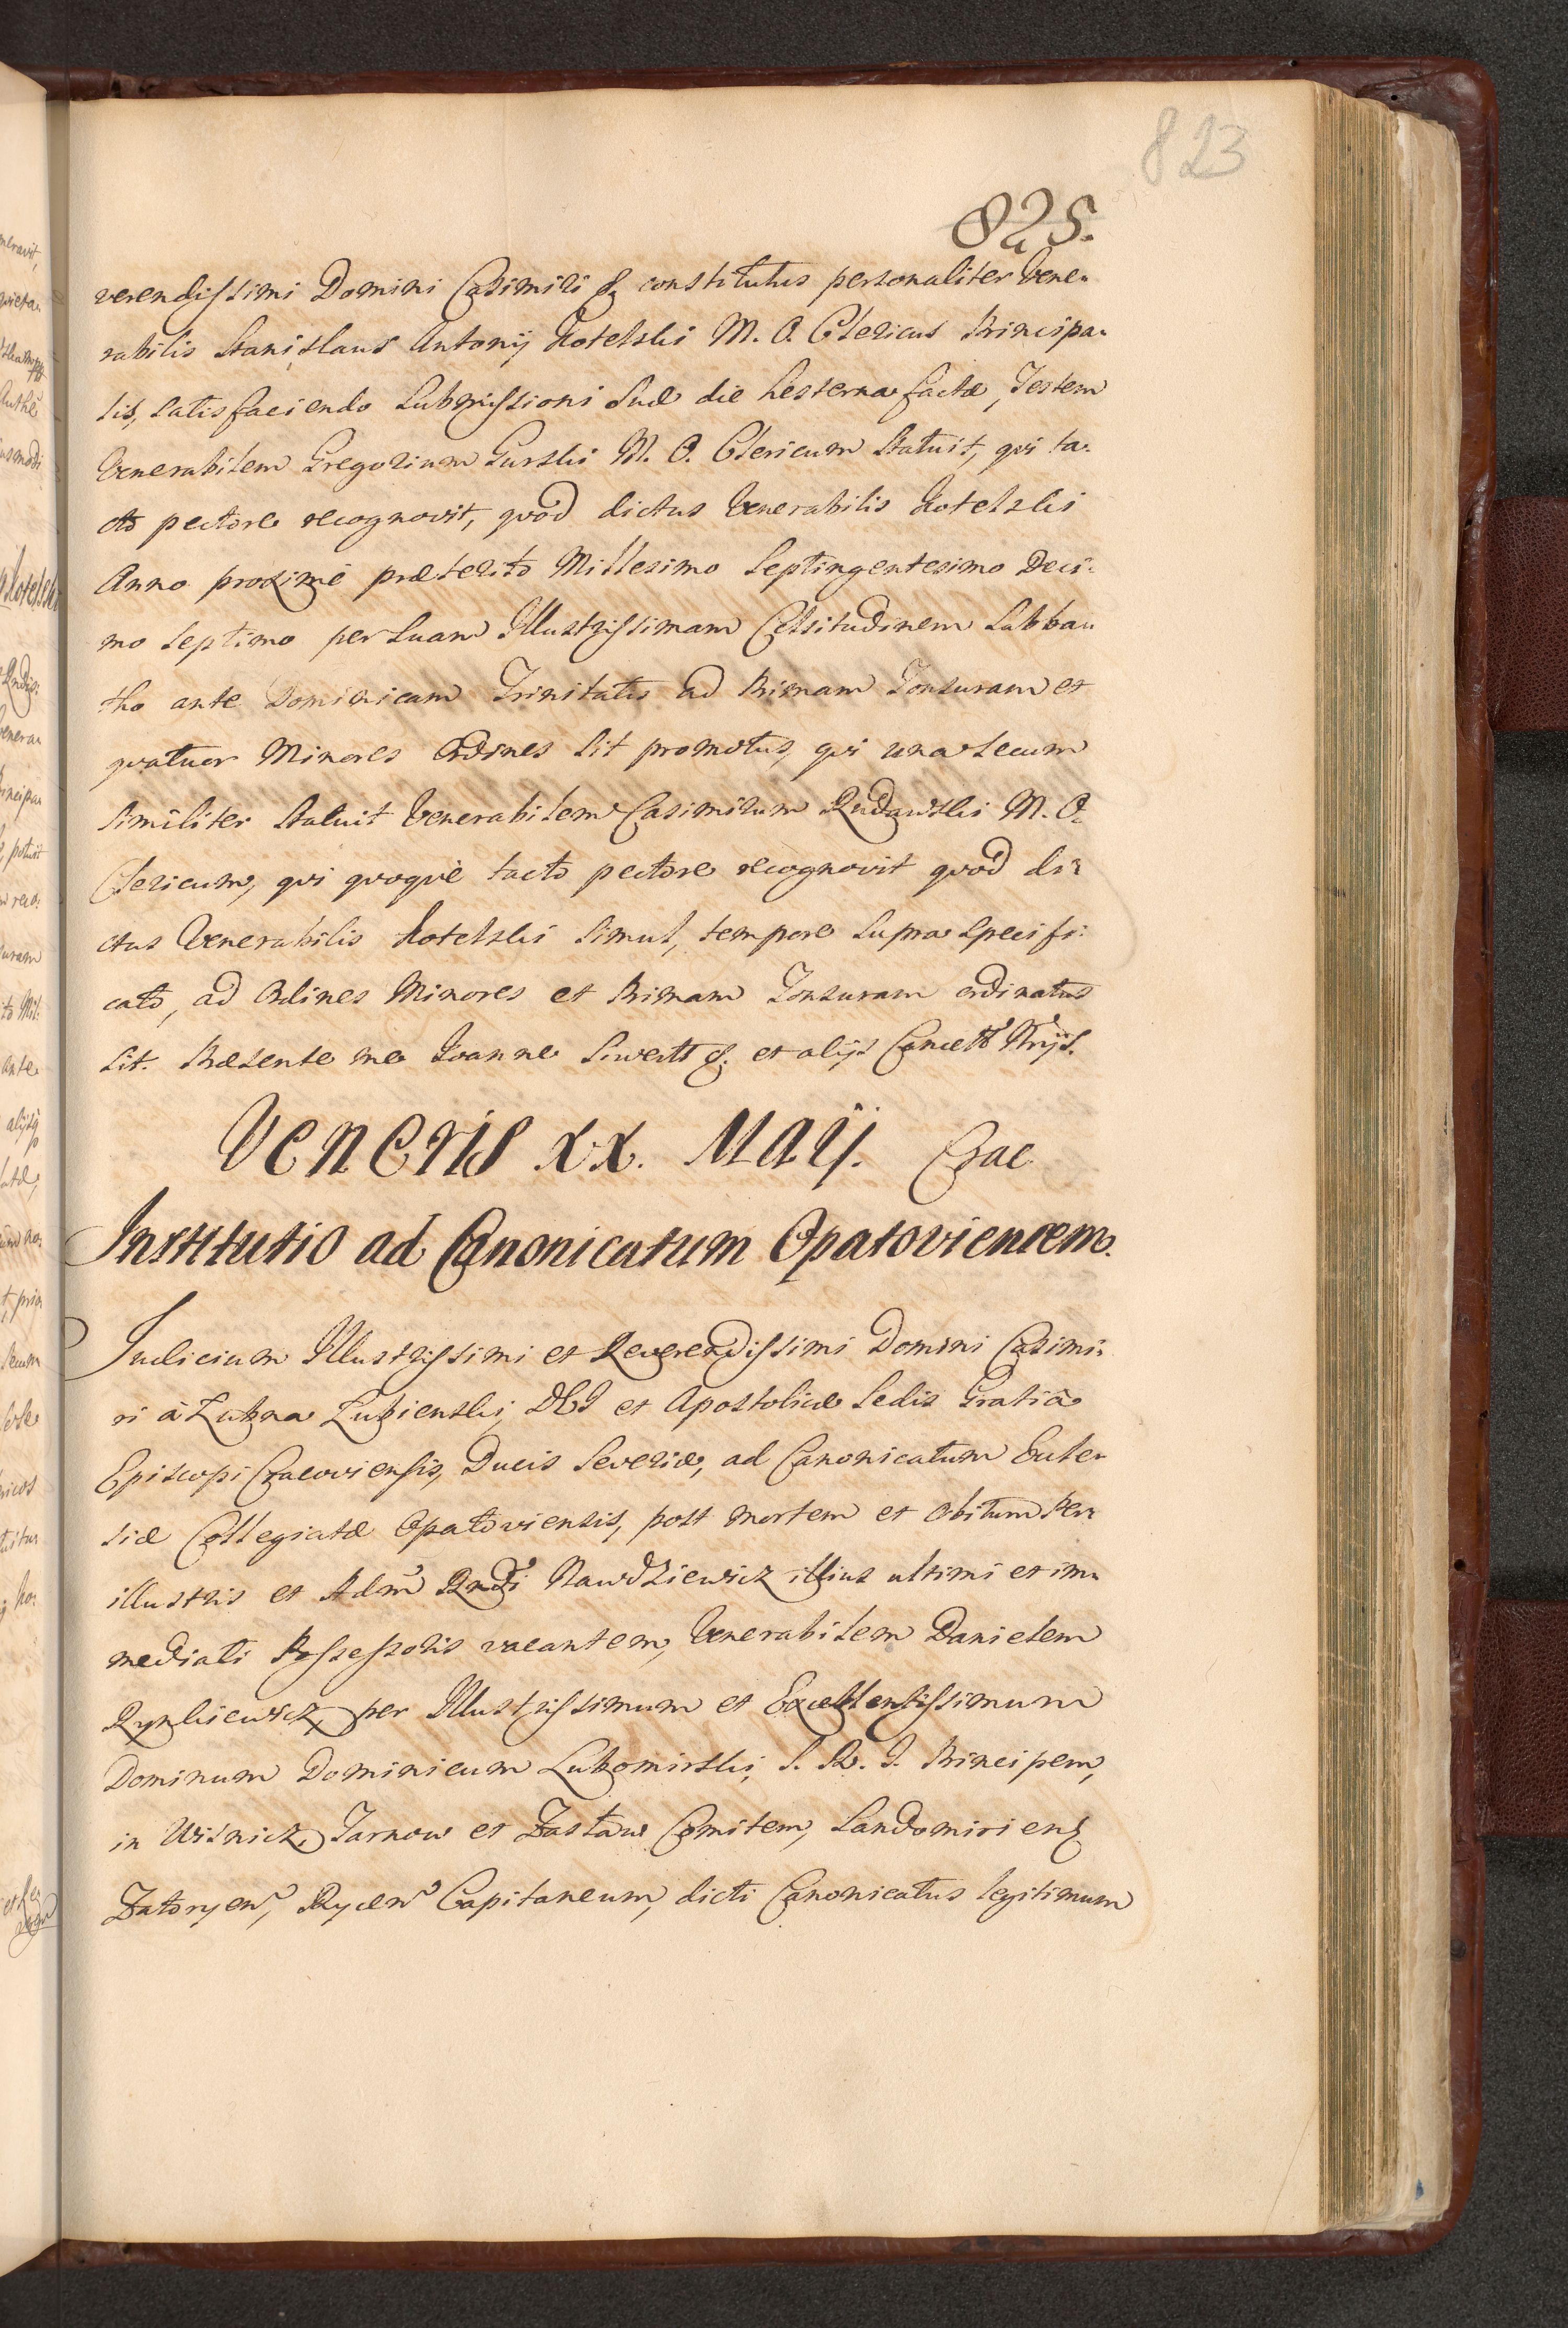 823
825.
verendissimi Domini Casimiri & constitutus personaliter Vene-
rabilis Stanislaus Antonij Kotelski M. O. Clericus Principa-
lis, satisfaciendo Submissioni Suæ die hesterna factæ, Testem
Venerabilem Gregorium Gurski M. O. Clericum Statuit, qui ta-
cto pectore recognovit, quod dictus Venerabilis Kotelski
Anno proximè præterito Millesimo Septingentesimo Deci-
mo Septimo per Suam Illustrissimam Celsitudinem Sabba-
tho ante Dominicam Trinitatis ad Primam Tonsuram et
quatuor Minores Ordines sit promotus, qui una secum
Similiter Statuit Venerabilem Casimirum Rudawski M. O.
Clericum, qui quoquè tacto pectore recognovit quod di-
ctus Venerabilis Kotelski simul, tempore supra specifi-
cato, ad Ordines Minores et Primam Tonsuram ordinatus
sit. Præsente me Joanne Siwerts & et alijs Cancell Nrijs.
Veneris xx. Maij. Crac
Institutio ad Canonicatum Opatoviensem.
Judicium Illustrissimi et Reverendissimi Domini Casimi-
ri à Łubna Łubienski, DEI et Apostolicæ Sedis Gratiâ
Episcopi Cracoviensis, Ducis Severiæ, ad Canonicatum Eccle-
siæ Collegiatæ Opatoviensis, post mortem et obitum Per-
illustris et Adm Rndi Nawdziewicz illius ultimi et im-
mediati Possessoris vacantem, Venerabilem Danielem
Rynkiewicz, per Illustrissimum et Excellentissimum
Dominum Dominicum Lubomirski, S. R. I. Principem,
in Wisnicz, Jarnow et Zasław Comitem, Sandomirien
Zatoryen, Rycen Capitaneum, dicti Canonicatus legitimum